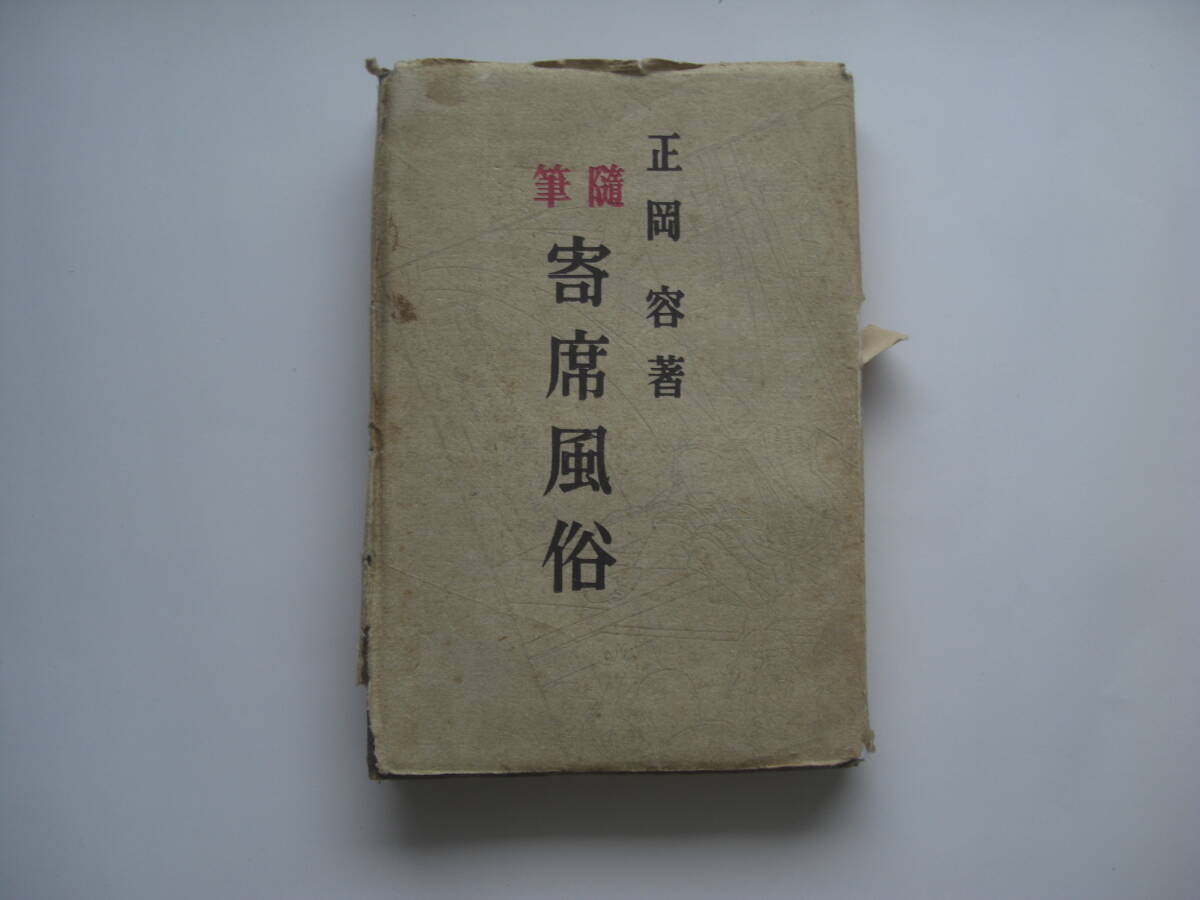 正岡容著
隨筆
寄席風俗